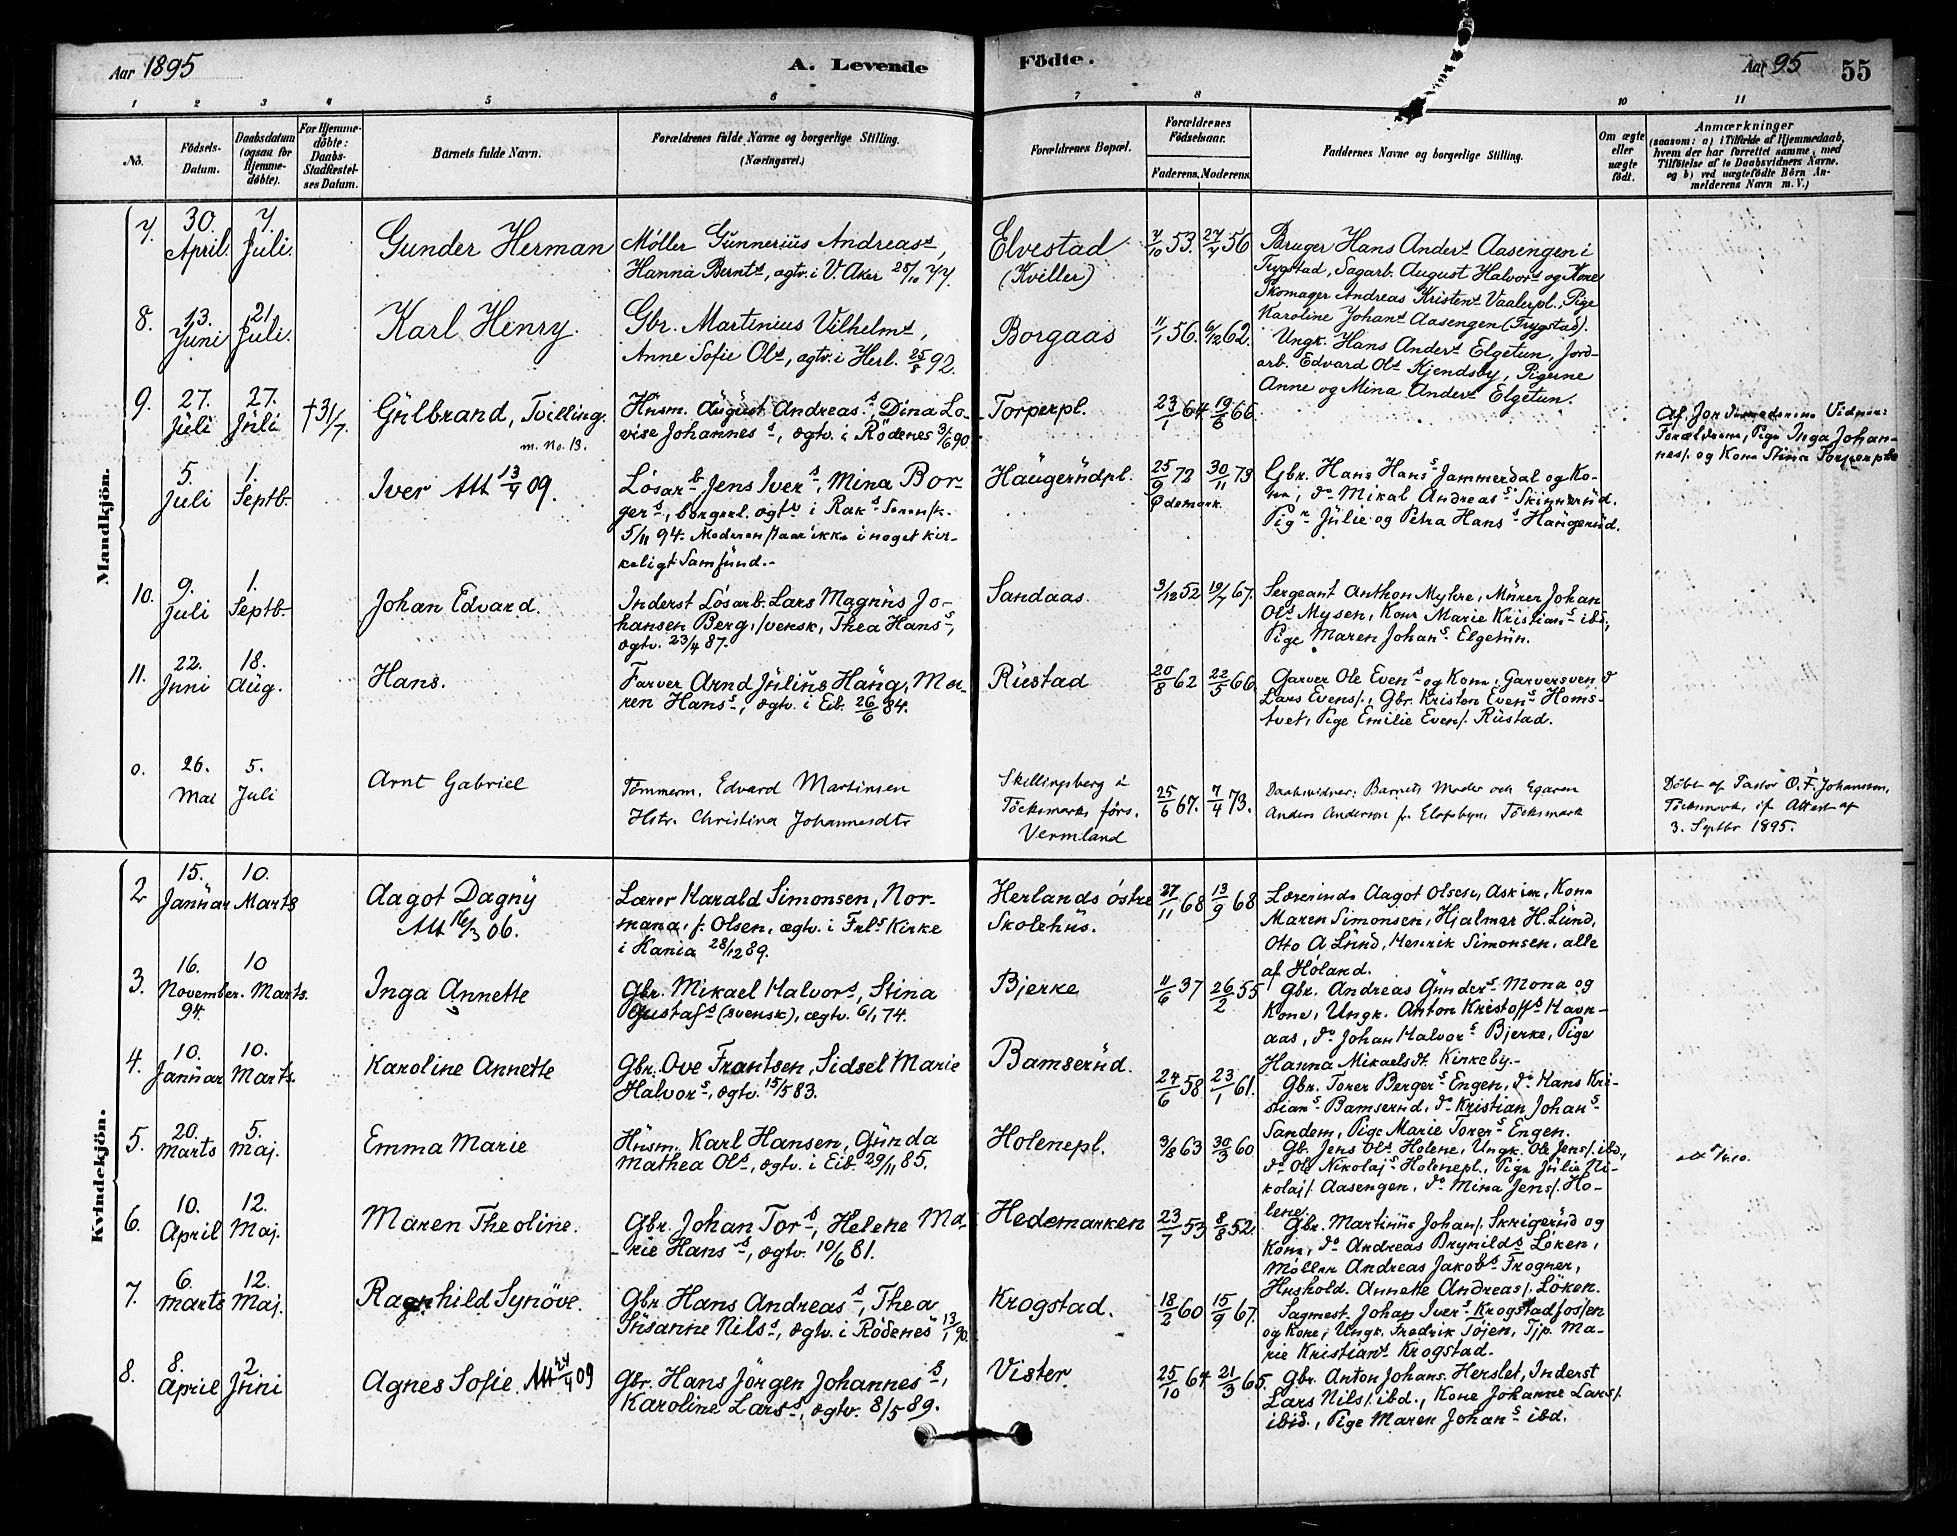 Aar 1895
A. Levende
Födte.
Aar 95
55
1 2 3 4 5 6 7 8 10 11
No.
Födsels-
Datum.
Daabsdatum
(ogsaa for
Hjemme-
döbte).
For Hjemme-
döbte:
Daabs-
Stadfæstel-
ses Datum.
Barnets fulde Navn.
Forældrenes fulde Navne og borgerlige Stilling.
(Næringsvei.)
Forældrenes Bopæl.
Forældrenes
Födselsaar.
Faderens. Moderens.
Faddernes Navne og borgerlige Stilling.
Om ægte
eller
uægte
født.
Anmærkninger
(saasom: a) i Tilfælde af Hjemmedaab,
hvem der har forrettet samme, med
Tilföielse af to Daabsvidners Navne,
og b) ved uægtefödte Börn An-
melderens Navn m. V.)
Mandkjön.
7.
30.
April.
7.
Juli.
Gunder Herman
Møller Gunnerius Andreass,
Hanna Bernts, ægtv. i V. Aker 28/10 77.
Elvestad
(Kviller)
7/10 53. 27/7 56
Bruger Hans Anders Aasengen i
Trygstad, Sagarb. August Halvors og Kone
Skomager Andreas Kristens Vaalerpl., Pige
Karoline Johans Aasengen (Trygstad).
8.
13.
Juni
21
Juli.
Karl Henry.
Gbr. Martinius Vilhelms,
Anne Sofie Ols, ægtv. i Herl. 25/8 92.
Borgaas
11/1 56. 6/12 62.
Ungk. Hans Anders Elgetun, Jord-
arb. Edvard Ols Kjendsby, Pigerne
Anne og Mina Anders Elgetun.
9.
27.
Juli
27.
Juli
†31/7.
Gulbrand, Tvilling.
m. No. 13.
Husm. August Andreass, Dina Lo-
vise Johanness, ægtv. i Rödenes 3/6 90
Torperpl.
23/1 64 19/6 66
Af Jordemoderen Vidner:
Forældrene, Pige Inga Johan-
nes. og Kone Stina Torperpl.
5.
Juli
1.
Septb.
Iver Att 13/4 09.
Lösarb. Jens Ivers, Mina Bor-
gers, borgerl. ægtv i Rak
5/11 94. Moderen staar ikke i noget kir-
keligt Samfund.-
Haugerudpl.
25/9 72 30/11 73
Ødemark
Gbr. Hans Hanss Jammerdal og Ko-
ne, do Mikal Andreass Skinnerud.
Pigr Julie og Petra Hanss Haugerud.
10.
9.
Juli
1.
Septb
Johan Edvard.
Inderst Lösarb. Lars Magnus Jo-
hansen Berg, svensk, Thea Hanss,
ægtv. 23/4 87.
Sandaas
3/12 52 19/7 67.
Sergeant Anthon Myhre, Murer Johan
Ols Mysen, Kone Marie Kristians ibd,
Pige Maren Johans Elgetun.
11.
22.
Juni
18.
Aug.
Hans.
Farver Arnd Julius Haug, Ma-
ren Hanss, ægtv. i Eib. 26/6 84.
Rustad
20/8 62 22/5 66
Garver Ole Evens og Kone, Garversvend
Lars Evens., Gbr. Kristen Evens Homs-
tvet, Pige Emilie Evens. Rustad.
o.
26.
Mai
5.
Juli
Arnt Gabriel
Tömmerm. Edvard Martinsen
Hstr. Christina Johannesdtr
Skillingsberg i
Töcksmarks förs.
Vermland
25/6 67. 7/4 73.
Daabsvidner: Barnets Moder och Egaren
Anders Anderson fr. Elofsbyn, Töcksmark
Döbt af Pastor O. F. Johansson,
Töcksmark, if. Attest af
3. Septbr 1895.
Kvindekjön.
2
15.
Januar
10.
Marts
Aagot Dagny
Att 16/3 06.
Lærer Harald Simonsen, Nor-
mana, f. Olsen, ægtv. i Frls Kirke
i Kania 28/12 89.
Herlands östre
Skolehus.
27/11 68 13/9 68
Lærerinde Aagot Olsen, Askim, Kone
Maren Simonsen, Hjalmar H. Lund,
Otto A Lund, Henrik Simonsen, alle
af Höland.
3.
16.
November.
94.
10
Marts.
Inga Annette
Gbr. Mikael Halvors, Stina
Gustafs (svensk), ægtv. 6/1 74.
Bjerke
11/6 37 26/2 55
Gbr. Andreas Gunders Mona og
Kone, Ungk. Anton Kristoffs Havn-
aas, do Johan Halvors Bjerke, Pige
Hanna Mikaelsdt. Kirkeby.-
4.
10.
Januar
10.
Marts.
Karoline Annette
Gbr. Ove Frantsen, Sidsel Marie
Halvors, ægtv. 15/5 83.
Bamserud.
24/6 58 23/1 61.
Gbr. Torer Bergers Engen, do Hans Kri-
stians Bamserud, do Kristian Johans
Sandem, Pige Marie Torers Engen.
5.
20.
Marts
5.
Maj.
Emma Marie
Husm. Karl Hansen, Gunda
Mathea Ols, ægtv. i Eib. 29/11 85.
Holenepl.
3/8 63 30/3 60
Gb. Jens Ols Holene, Ungk. Ole Jens. ibd,
do Ole Nikolajs Holenepl, Pige Julie Ni-
kolajs. Aasengen, do Mina Jens. Ho-
lene.
6.
10.
April
12.
Maj.
Maren Theoline.
Gbr. Johan Tors, Helene Ma-
rie Hanss, ægtv. 10/6 81.
Hedemarken
23/7 53 8/8 52.
Gbr. Martinius Johans. Skrigerud og
Kone, do Andreas Brynilds Löken,
Möller Andreas Jakobs Frogner,
Hushold. Annette Andreas. Löken.
7.
6.
Marts
12.
Maj.
Ragnhild Synöve.
Gbr Hans Andreass, Thea
Susanne Nilss, ægtv. i Rödenes 13/1 90.
Krogstad.
18/2 60 15/9 67.
Sagmest. Johan Ivers Krogstadfossen
og Kone, Ungk. Fredrik Töjen, Tjp. Ma-
rie Kristians Krogstad.
8.
8.
April
2
Juni
Agnes Sofie. Att 24/4 09
Gbr. Hans Jörgen Johanness,
Karoline Larss, ægtv. 8/5 89.
Vister
25/10 64 21/3 65.
Gbr. Anton Johans. Herslet, Inderst
Lars Nils. ibd., Kone Johanne Lars.
ibid., Pige Maren Johans ibd.